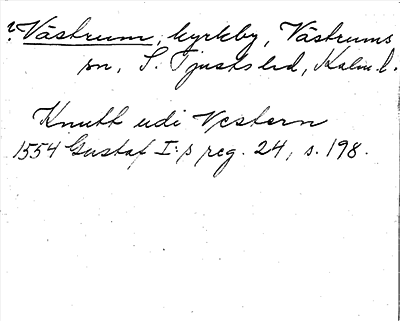 v. Västrum, kyrkby, Västrums
sn, S. Tjusts hd, Kalm. l.
Knutt udi Vestern
1554 Gustaf I:s reg. 24, s. 198.